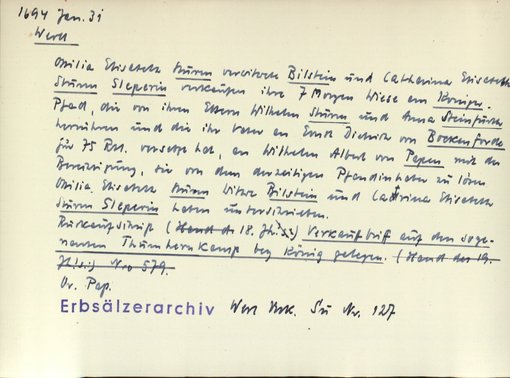 1694 Jan. 31
Werl
Otilia Elisabeth Sturm verwitwete Bilstein und Catharina Elisabeth
Sturm Sleperin verkaufen ihre 7 Morgen Wiese am Königs-
Pfad, die von ihren Eltern Wilhelm Sturm und Anna Steinfurth
herrühren und die ihr Vater an Ernst Dietrich von Bockenförde
für 75 Rtl. versetzt hat, an Wilhelm Albert von Papen mit der
Berechtigung, sie von dem derzeitigen Pfandinhaber zu lösen.
Otilia Elisabeth Sturm Witwe Bilstein und Catrina Elisabeth
Sturm Sleperin haben unterschrieben.
Rückaufschrift (Hand d. 18. Jh.s) Verkaufbrief auf den soge-
nannten Thumhernkamp bey König gelegen. (Hand des 19.
Jh.s) Nro 579.
Or. Pap.
Erbsälzerarchiv Werl Urk. Su Nr. 127